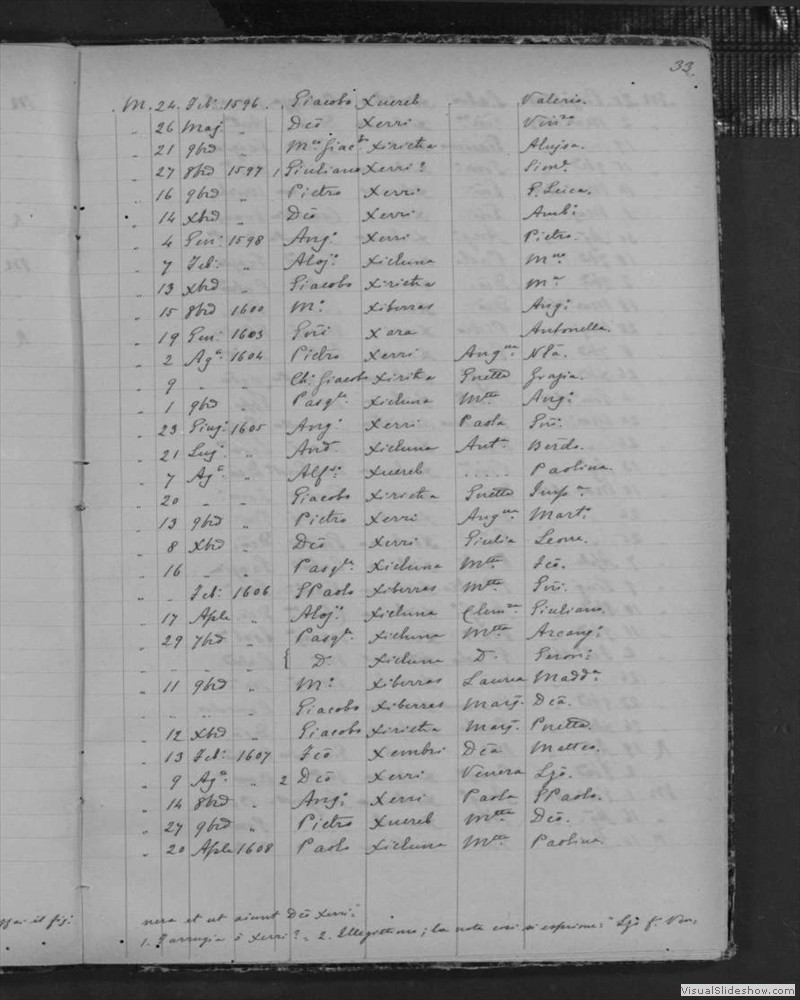 33.
M. 24. Feb: 1596 Giacobo Xuereb Valerio.
„ 26 Mag „ Dco Xerri Vinc.a
„ 21 9bre „ M.ro Giac.bo Xiricha Aluisa.
„ 27 8bre 1597 1 Giuliano Xerri? Sim.e
„ 16 9bre „ Pietro Xerri
„ 14 Xbre „ Dco Xerri Amb:
„ 4 Gen: 1598 Ang: Xerri Pietro.
„ 7 Feb: „ Aloj: Xicluna M.no
„ 13 Xbre „ Giacobo Xiricha M.a
„ 15 8bre 1600 M: Xiberras Ang:
„ 19 Gen: 1603 Gni Xara Antonella.
„ 2 Ag: 1604 Pietro Xerri Ang.na Nta.
„ 9 „ „ Giacobo Xiricha Gnetta Grazia.
„ 1 9bre „ Pasq.le Xicluna M.tta Ang:
„ 23 Giug: 1605 Ang: Xerri Paola Gni.
„ 21 Lug: „ And. Xicluna Ant.a Berdo.
„ 7 Ag: „ Alf.so Xuereb ..... Paolina.
„ 20 „ „ Giacobo Xiricha Gnetta Imp.a
„ 13 9bre „ Pietro Xerri Ang.na Mart:
„ 8 Xbre „ Dco Xerri Giulia Leone.
„ 16 „ „ Pasq.le Xicluna M.tta Fco.
„ „ Feb: 1606 GPaolo Xiberras M.tta Gni.
„ 17 Aple „ Aloj: Xicluna Clem.za Giuliano.
„ 29 7bre „ Pasq.le Xicluna M.tta Arcang:
„ „ „ „ { D. Xicluna D. Geron:
„ 11 9bre „ M: Xiberras Laurea Madd.a
„ „ „ „ Giacobo Xiberras Marg. Dca.
„ 12 Xbre „ Giacobo Xiricha Marg. Pnetta.
„ 13 Feb: 1607 Fco Xembri Dca Matteo.
„ 9 Ag: „ 2 Dco Xerri Venera Ljo.
„ 14 8bre „ Ang: Xerri Paola GPaolo.
„ 27 9bre „ Pietro Xuereb M.tta Dco.
„ 20 Aple 1608 Paolo Xicluna M.tta Paolina.
il fig:
nera et ut aiunt Dco Xerri"
1. Farrugia ó Xerri? 2. Illegittimo; la nota così si esprime: "Ljo f. Ven,
VisualSlideshow.com